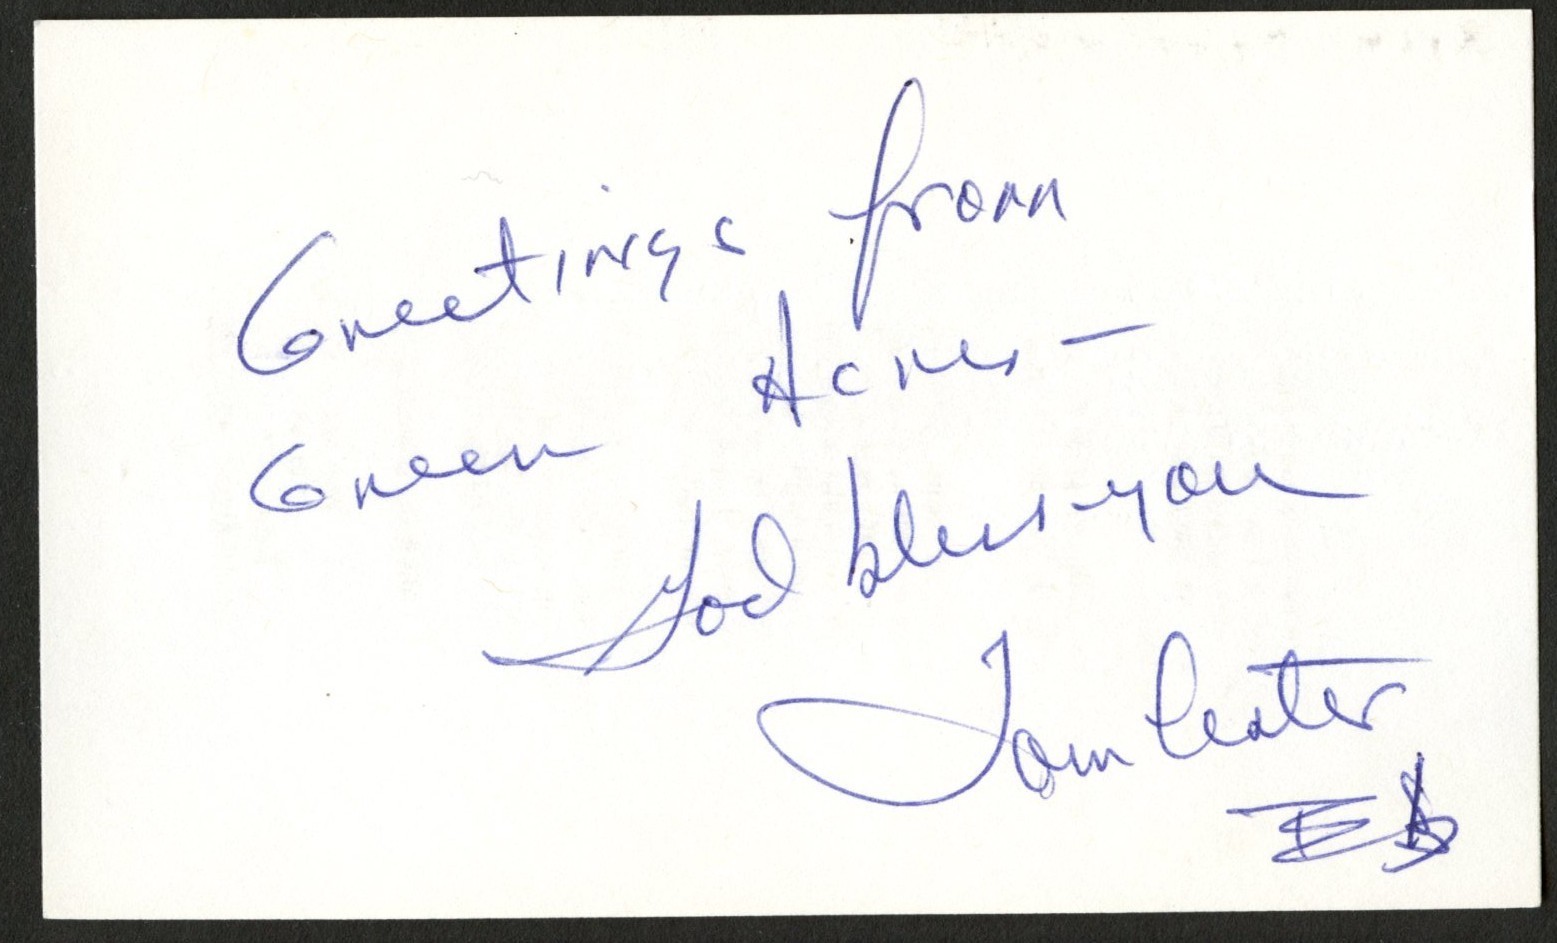 Greetings from
Green Acres -
God bless you
Tom Lester
EB